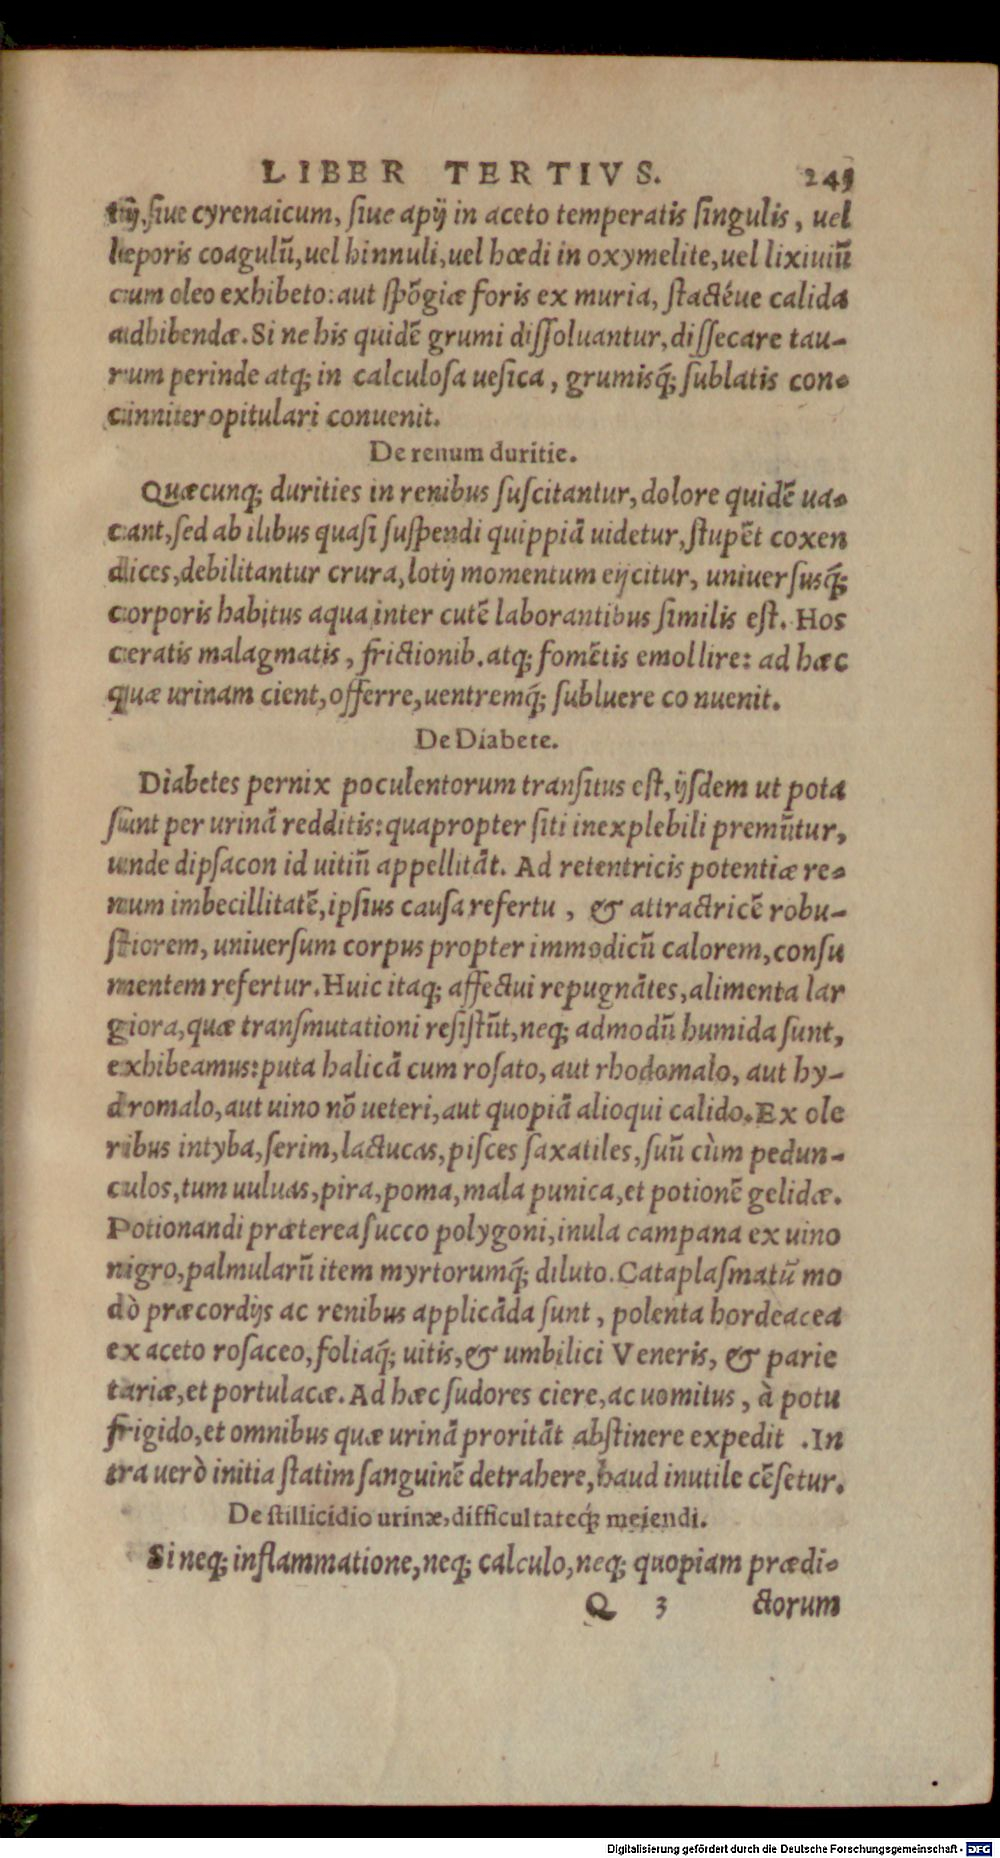 LIBER TERTIVS. 245
tij, ſiue cyrenaicum, ſiue apij in aceto temperatis ſingulis, uel
leporis coagulũ, uel hinnuli, uel hœdi in oxymelite, uel lixiuiũ
cum oleo exhibeto: aut ſpõgiæ foris ex muria, ſtactéue calida
adhibendæ. Si ne his quidẽ grumi diſſoluantur, diſſecare tau-
rum perinde atq; in calculoſa ueſica, grumisq́; ſublatis con-
cinniter opitulari conuenit.
De renum duritie.
Quæcunq; durities in renibus ſuſcitantur, dolore quidẽ ua-
cant, ſed ab ilibus quaſi ſuſpendi quippiã uidetur, ſtupẽt coxen
dices, debilitantur crura, lotij momentum eijcitur, uniuerſusq́;
corporis habitus aqua inter cutẽ laborantibus ſimilis eſt. Hos
ceratis malagmatis, frictionib. atq; fomẽtis emollire: ad hæc
quæ urinam cient, offerre, uentremq́; ſubluere co nuenit.
De Diabete.
Diabetes pernix poculentorum tranſitus eſt, ijſdem ut pota
ſunt per urinã redditis: quapropter ſiti inexplebili premũtur,
unde dipſacon id uitiũ appellitãt. Ad retentricis potentiæ re-
num imbecillitatẽ, ipſius cauſa refertu, & attractricẽ robu-
ſtiorem, uniuerſum corpus propter immodicũ calorem, conſu
mentem refertur. Huic itaq; affectui repugnãtes, alimenta lar
giora, quæ tranſmutationi reſiſtũt, neq; admodũ humida ſunt,
exhibeamus: puta halicã cum roſato, aut rhodomalo, aut hy-
dromalo, aut uino nõ ueteri, aut quopiã alioqui calido. Ex ole
ribus intyba, ſerim, lactucas, piſces ſaxatiles, ſuũ cùm pedun-
culos, tum uuluas, pira, poma, mala punica, et potionẽ gelidæ.
Potionandi præterea ſucco polygoni, inula campana ex uino
nigro, palmularũ item myrtorumq́; diluto. Cataplaſmatũ mo
dò præcordijs ac renibus applicãda ſunt, polenta hordeacea
ex aceto roſaceo, foliaq́; uitis, & umbilici Veneris, & parie
tariæ, et portulacæ. Ad hæc ſudores ciere, ac uomitus, à potu
frigido, et omnibus quæ urinã proritãt abſtinere expedit . In
tra uerò initia ſtatim ſanguinẽ detrahere, haud inutile cẽſetur.
De ſtillicidio urinæ, difficultateq́; meiendi.
Si neq; inflammatione, neq; calculo, neq; quopiam prædi-
Q 3 ctorum
Digitalisierung gefördert durch die Deutsche Forschungsgemeinschaft - DFG